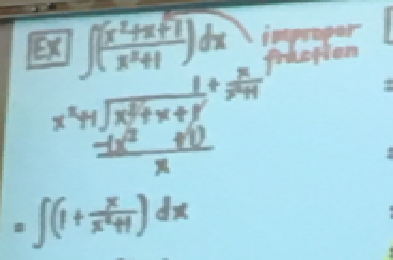 Ex ∫(x²+x+1/x²+1)dx improper fraction
1 + x/x²+1
x²+1 √x²+x+1
-(x² +1)
x
= ∫(1 + x/x²+1) dx